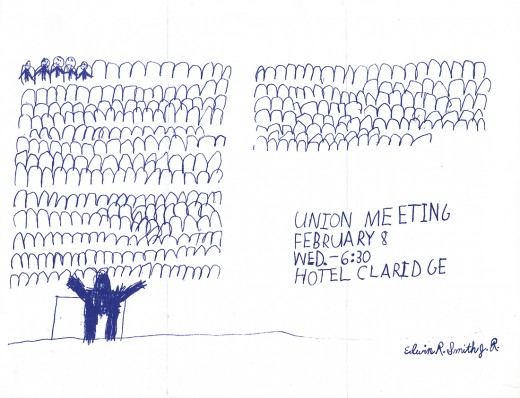 UNION MEETING
FEBRUARY 8
WED.-6:30
HOTEL CLARIDGE
Edwin R. Smith J. R.